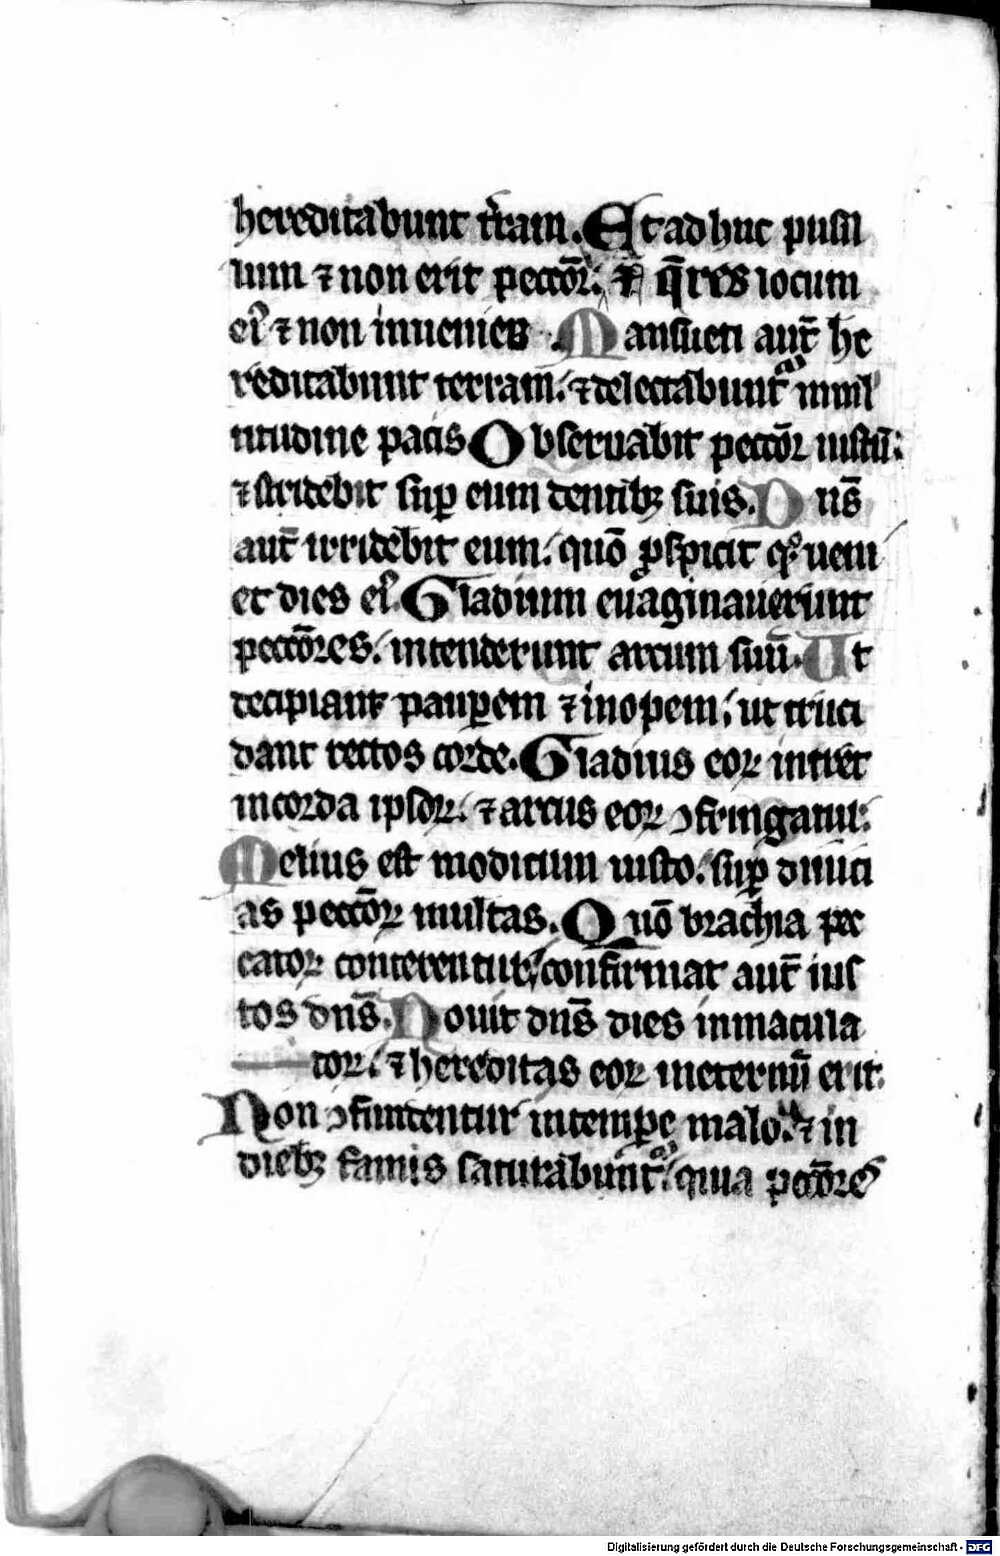 hereditabunt t̄ram. Et adhuc pusil
lum ⁊ non erit pecc̄or: ⁊ q̄res locum
eiꝰ ⁊ non inuenies. Mansueti aut̄ he
reditabunt terram: ⁊ delectabunt᷑ in ml̓
titudine pacis Obseruabit pecc̄or iustū:
⁊ stridebit suꝑ eum dentibꝫ suis. Dn̄s
aut̄ irridebit eum: quō ꝓspicit qͦ ueni
et dies eiꝰ. Gladium euaginauerunt
pecc̄ores: intenderunt arcum suū. Ut
decipiant pauꝑem ⁊ inopem: ut truci
dant rectos corde. Gladius eoꝝ intret
in corda ipsoꝝ: ⁊ arcus eoꝝ ꝯfringatur:
Melius est modicum iusto: suꝑ diuici
as pecc̄oꝝ multas. Quō brachia pec
catoꝝ conterentur: confirmat aut̄ ius
tos dn̄s. Nouit dn̄s dies inmacula
toꝝ: ⁊ hereditas eoꝝ in eternū erit:
Non ꝯfundentur in tempe malo: ⁊ in
diebꝫ famis saturabunt᷑: quia pcc̄ores
Digitalisierung gefördert durch die Deutsche Forschungsgemeinschaft - DFG